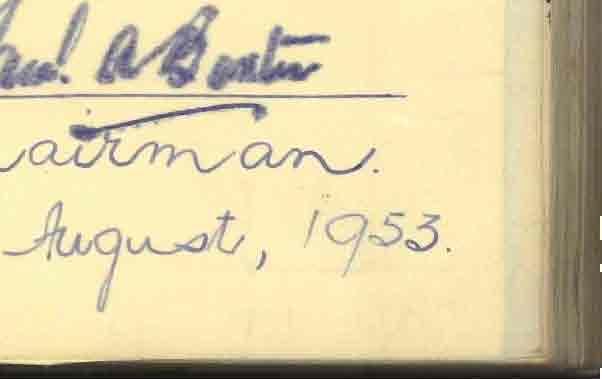 A Baxter
airman.
August, 1953.